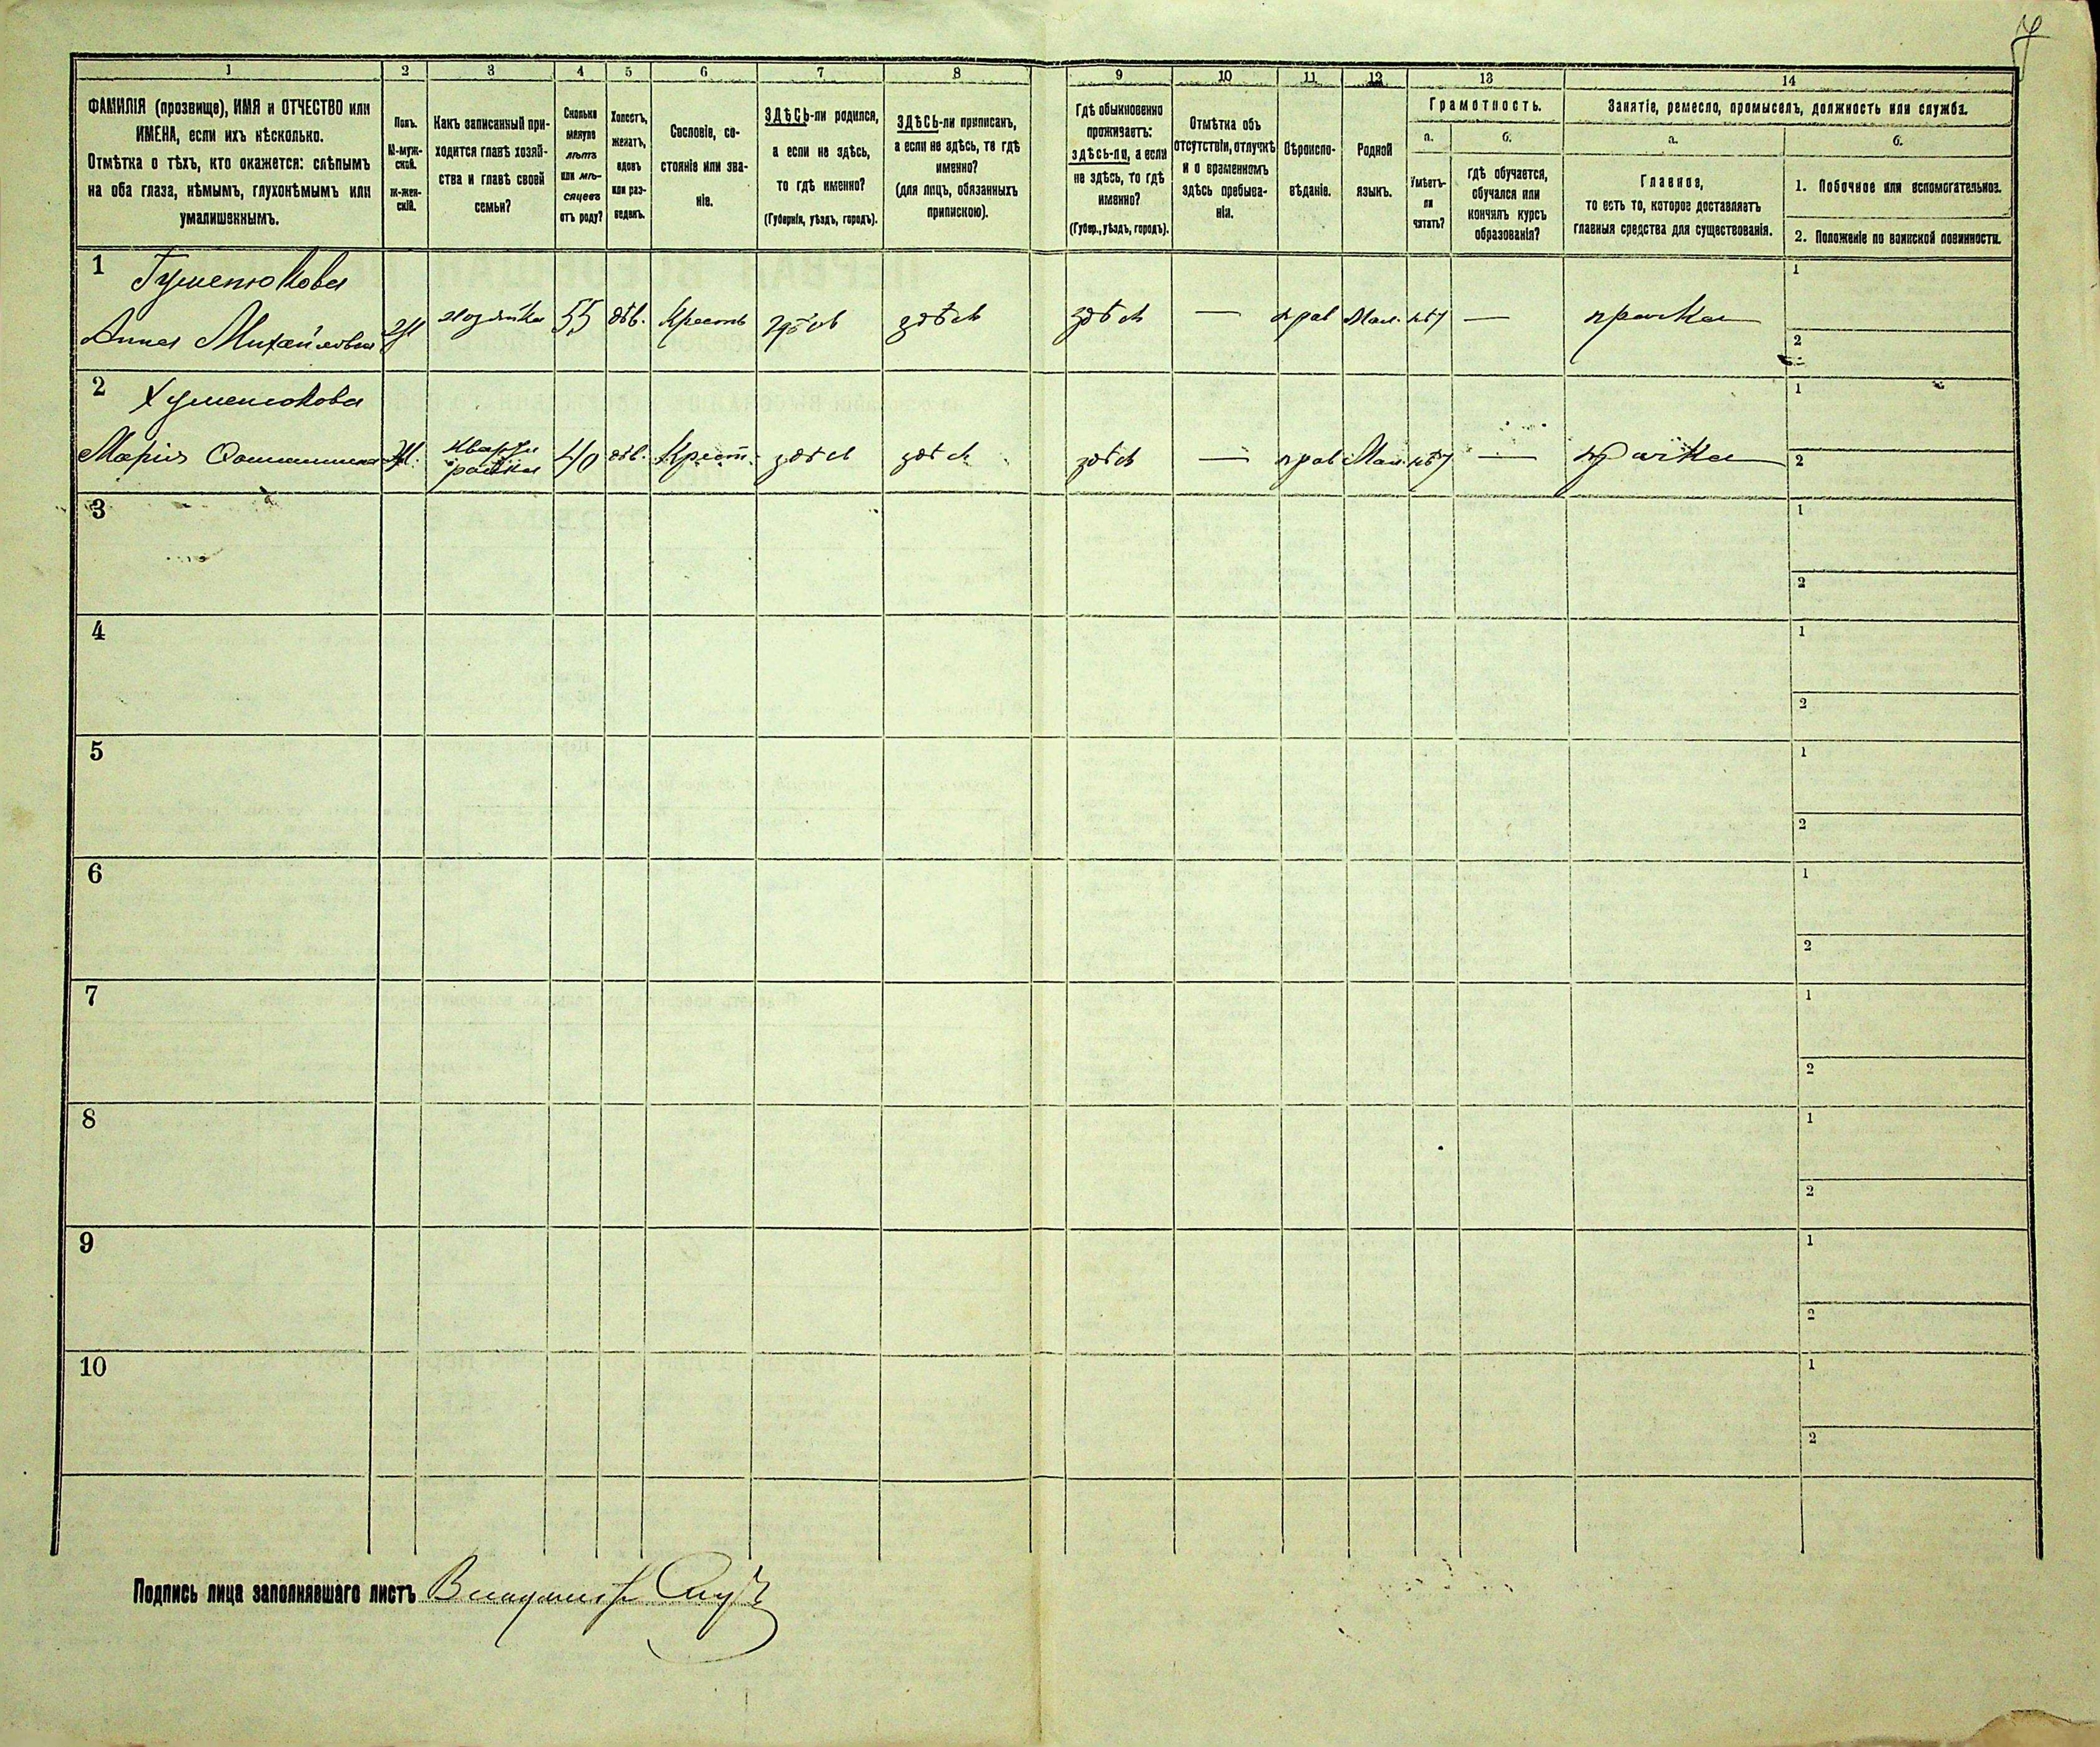 1 2 3 4 5 6 7 8 9 10 11 12 13 14
ФАМИЛІЯ (прозвище), ИМЯ и ОТЧЕСТВО или
ИМЕНА, если ихъ нѣсколько.
Отмѣтка о тѣхъ, кто окажется: слѣпымъ
на оба глаза, нѣмымъ, глухонѣмымъ или
умалишеннымъ.
Полъ.
М-муж-
ской.
ж-жен-
скій.
Какъ записанный при-
ходится главѣ хозяй-
ства и главѣ своей
семьи?
Сколько
минуло
лѣтъ
или мѣ-
сяцевъ
отъ роду?
Холостъ,
женатъ,
вдовъ
или раз-
веденъ.
Сословіе, со-
стояніе или зва-
ніе.
ЗДѢСЬ-ли родился,
а если не здѣсь,
то гдѣ именно?
(Губернія, уѣздъ, городъ).
ЗДѢСЬ-ли приписанъ,
а если не здѣсь, то гдѣ
именно?
(для лицъ, обязанныхъ
припискою).
Гдѣ обыкновенно
проживаетъ:
здѣсь-ли, а если
не здѣсь, то гдѣ
именно?
(Губер., уѣздъ, городъ).
Отмѣтка объ
отсутствіи, отлучкѣ
и о временномъ
здѣсь пребыва-
ніи.
Вѣроиспо-
вѣданіе.
Родной
языкъ.
Грамотность.
а.
Умѣетъ-
ли
читать?
б.
гдѣ обучается,
обучался или
кончилъ курсъ
образованія?
Занятіе, ремесло, промыселъ, должность или служба.
а.
Главное,
то есть то, которое доставляетъ
главныя средства для существованія.
б.
1. Побочное или вспомогательное.
2. Положеніе по воинской повинности.
1 Гуменюкова
Анна Михайловна Ж хозяйка 55 дѣв. Крест здѣсь здѣсь здѣсь — прав Мал. нѣт — прачка
1
2
2 Гуменюкова
Марія Ж. Кварти
рантка 40 дѣв. Крест. здѣсь здѣсь здѣсь — прав Мал. нѣт — прачка
1
2
3
1
2
4
1
2
5
1
2
6
1
2
7
1
2
8
1
2
9
1
2
10
1
2
Подпись лица заполнявшаго листъ Владимир